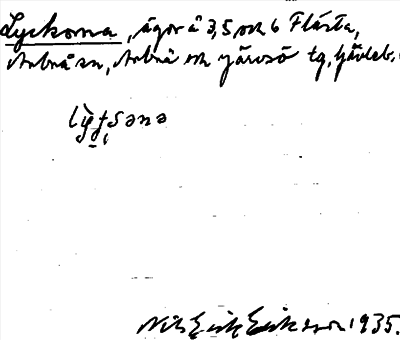 Lyckorna, ägor å 3, 5 och 6 Flästa,
Arbrå sn, Arbrå och Järvsö tg, Gävleb.
lỳt̯sənə
Nils Erik Eriksson 1935.